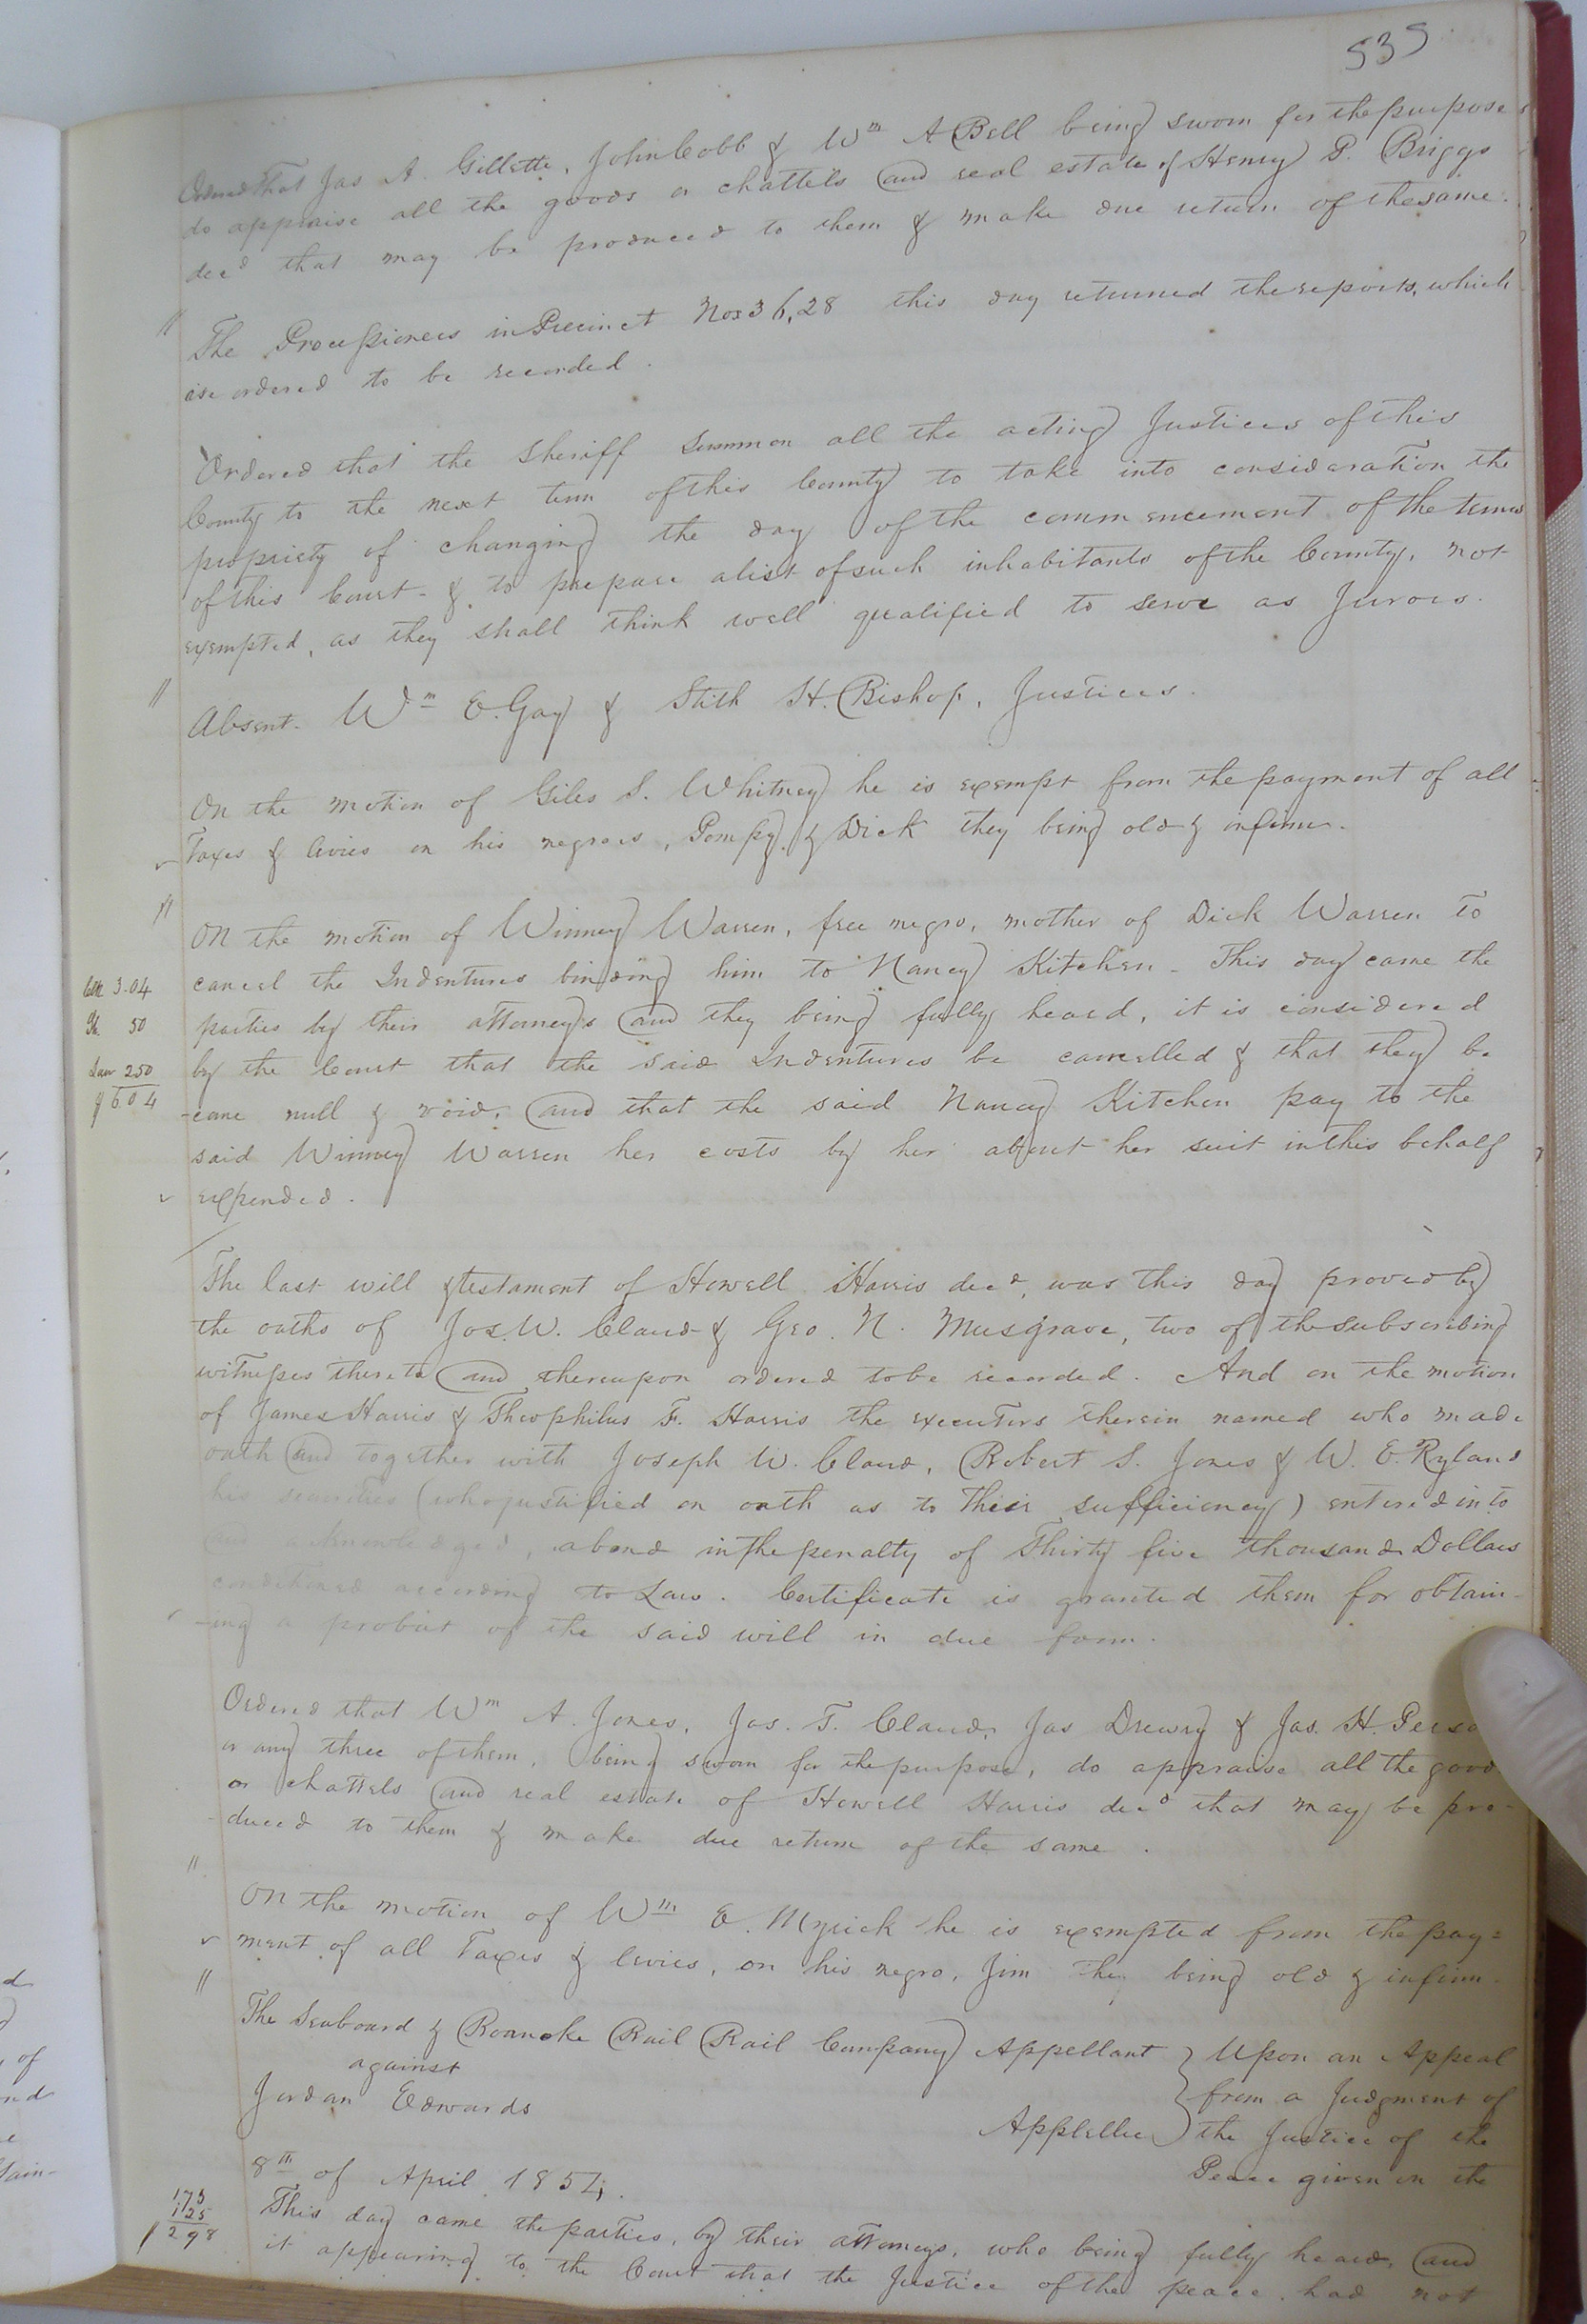 535
Ordered That Jas A Gillette, John Cobb & Wm A Bell being sworn for the purpose
do appraise all the goods or chattels and real estate of Henry P. Briggs
decd that may be produced to them & make due return of the same.
The Processioners in Precinct Nos 36, 28 this day returned the reports, which
are ordered to be recorded.
Ordered that the Sheriff Summon all the acting Justices of this
County to the next term of this County to take into consideration the
propriety of changing the day of the commencement of the terms
of this Court - & to prepare a list of such inhabitants of the County, not
exempted, as they shall think well qualified to serve as Jurors.
Absent. Wm E. Gay & Stith H. Bishop, Justices.
On the motion of Giles S. Whitney he is exempt from the payment of all
Taxes & levies on his negroes, Pompy & Dick they being old & infirm.
On the motion of Winney Warren, free negro, mother of Dick Warren to
cancel the Indentures binding him to Nancy Kitchen - This day came the
Clk 3.04
parties by their attorneys and they being fully heard, it is considered
Sh 50
by the Court that the said Indentures be cancelled & that they be
Law 250
-came null & void, and that the said Nancy Kitchen pay to the
$6.04
said Winney Warren her costs by her about her suit in this behalf
expended.
The last will & testament of Howell Harris decd, was this day proved by
the oaths of Jos. W. Claud & Geo. N. Musgrave, two of the subscribing
witnesses thereto and thereupon ordered to be recorded. And on the motion
of James Harris & Theophilus F. Harris the executors therein named who made
oath and together with Joseph W. Claud, Robert S. Jones & W. E. Ryland
his securities (who justified on oath as to their sufficiency) entered into
and acknowledged, a bond in the penalty of Thirty five thousand Dollars
conditioned according to Law. Certificate is granted them for obtain-
-ing a probat of the said will in due form.
Ordered that Wm A. Jones, Jas. T. Claud, Jas Drewry & Jas. H. Perso
or any three of them, being sworn for the purpose, do appraise all the good
or chattels and real estate of Howell Harris decd that may be pro-
-duced to them & make due return of the same.
On the motion of Wm E. Myrick he is exempted from the pay=
ment of all Taxes & levies, on his negro, Jim he being old & infirm.
The Seaboard & Roanoke Rail Rail Company Appellant
against
Jordan Edwards
Applellee
Upon an Appeal
from a Judgment of
the Justice of the
Peace given on the
8th of April 1854.
This day came the parties, by their attorneys, who being fully heard, and
173
125
$298
it appearing to the Court that the Justice of the peace had not